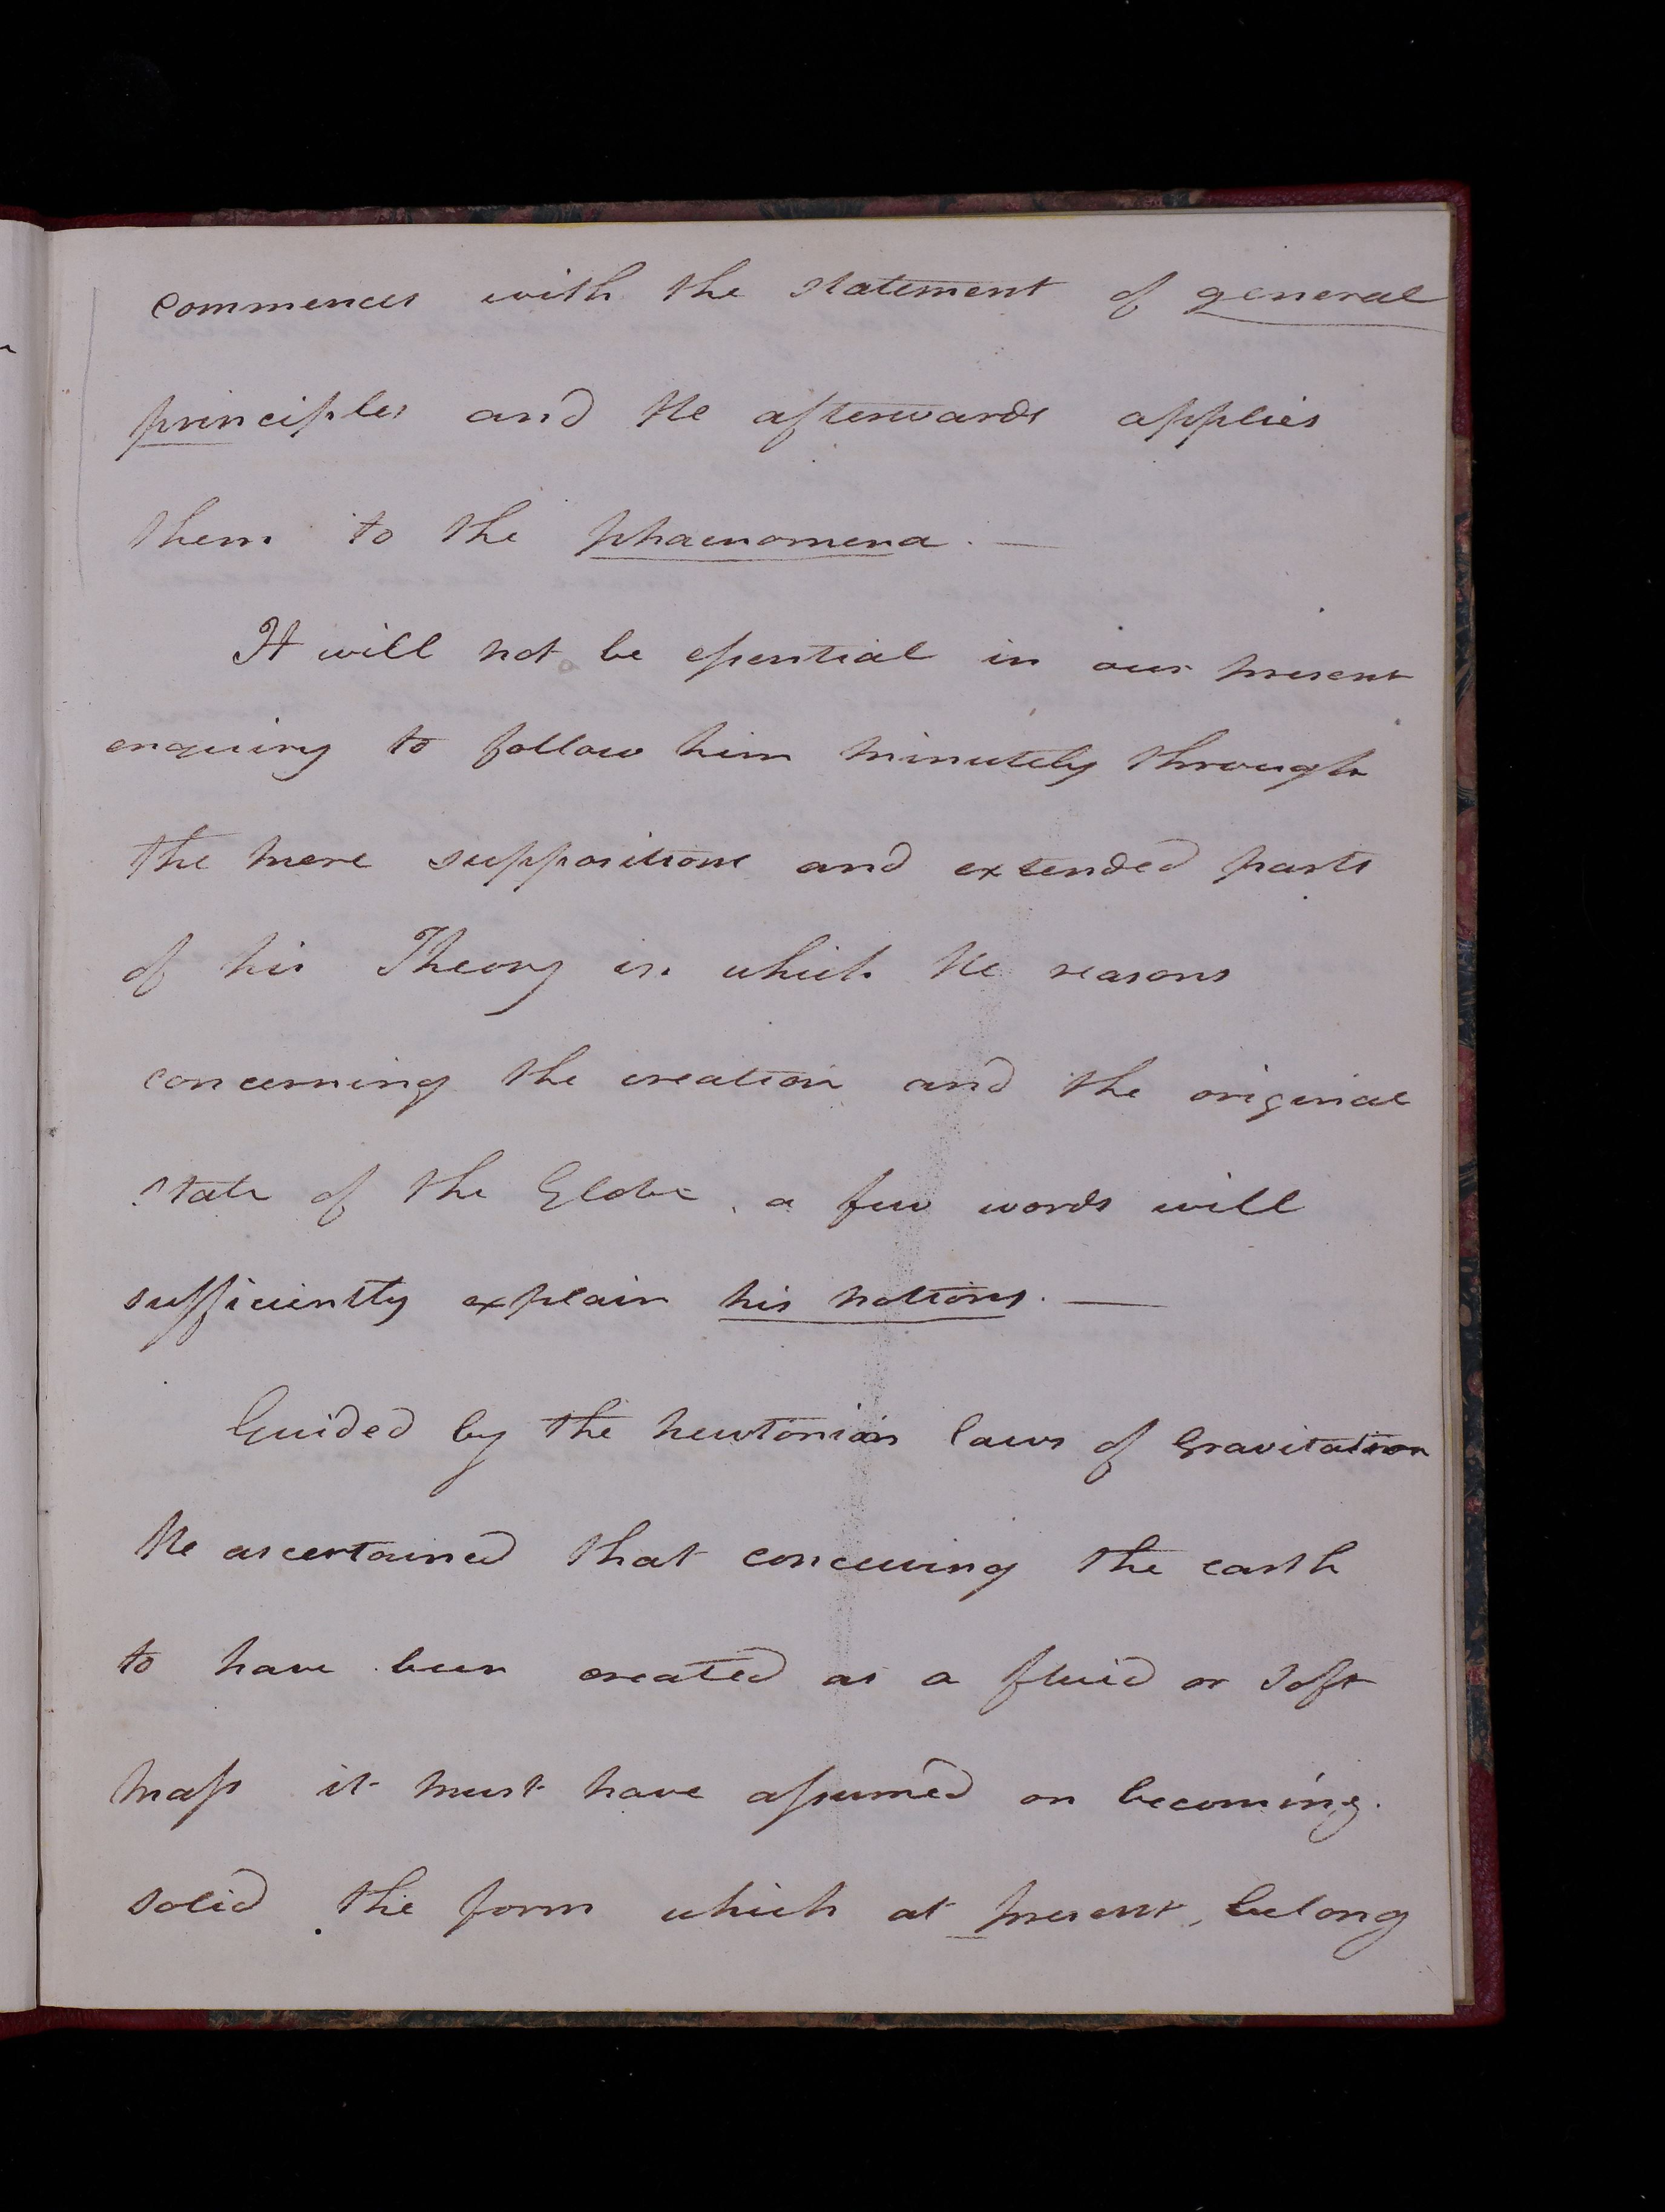 commences with the statement of general
principles and He afterwards applies
them to the phaenomena. —
It will not be essential in our present
enquiry to follow him minutely through
the mere suppositions and extended parts
of his Theory in which He reasons
concerning the creation and the original
state of the Globe, a few words will
sufficiently explain his notions. —
Guided by the newtonian laws of Gravitation
He ascertained that conceiving the earth
to have been created as a fluid or soft
mass it must have assumed on becoming
solid the form which at present, belong